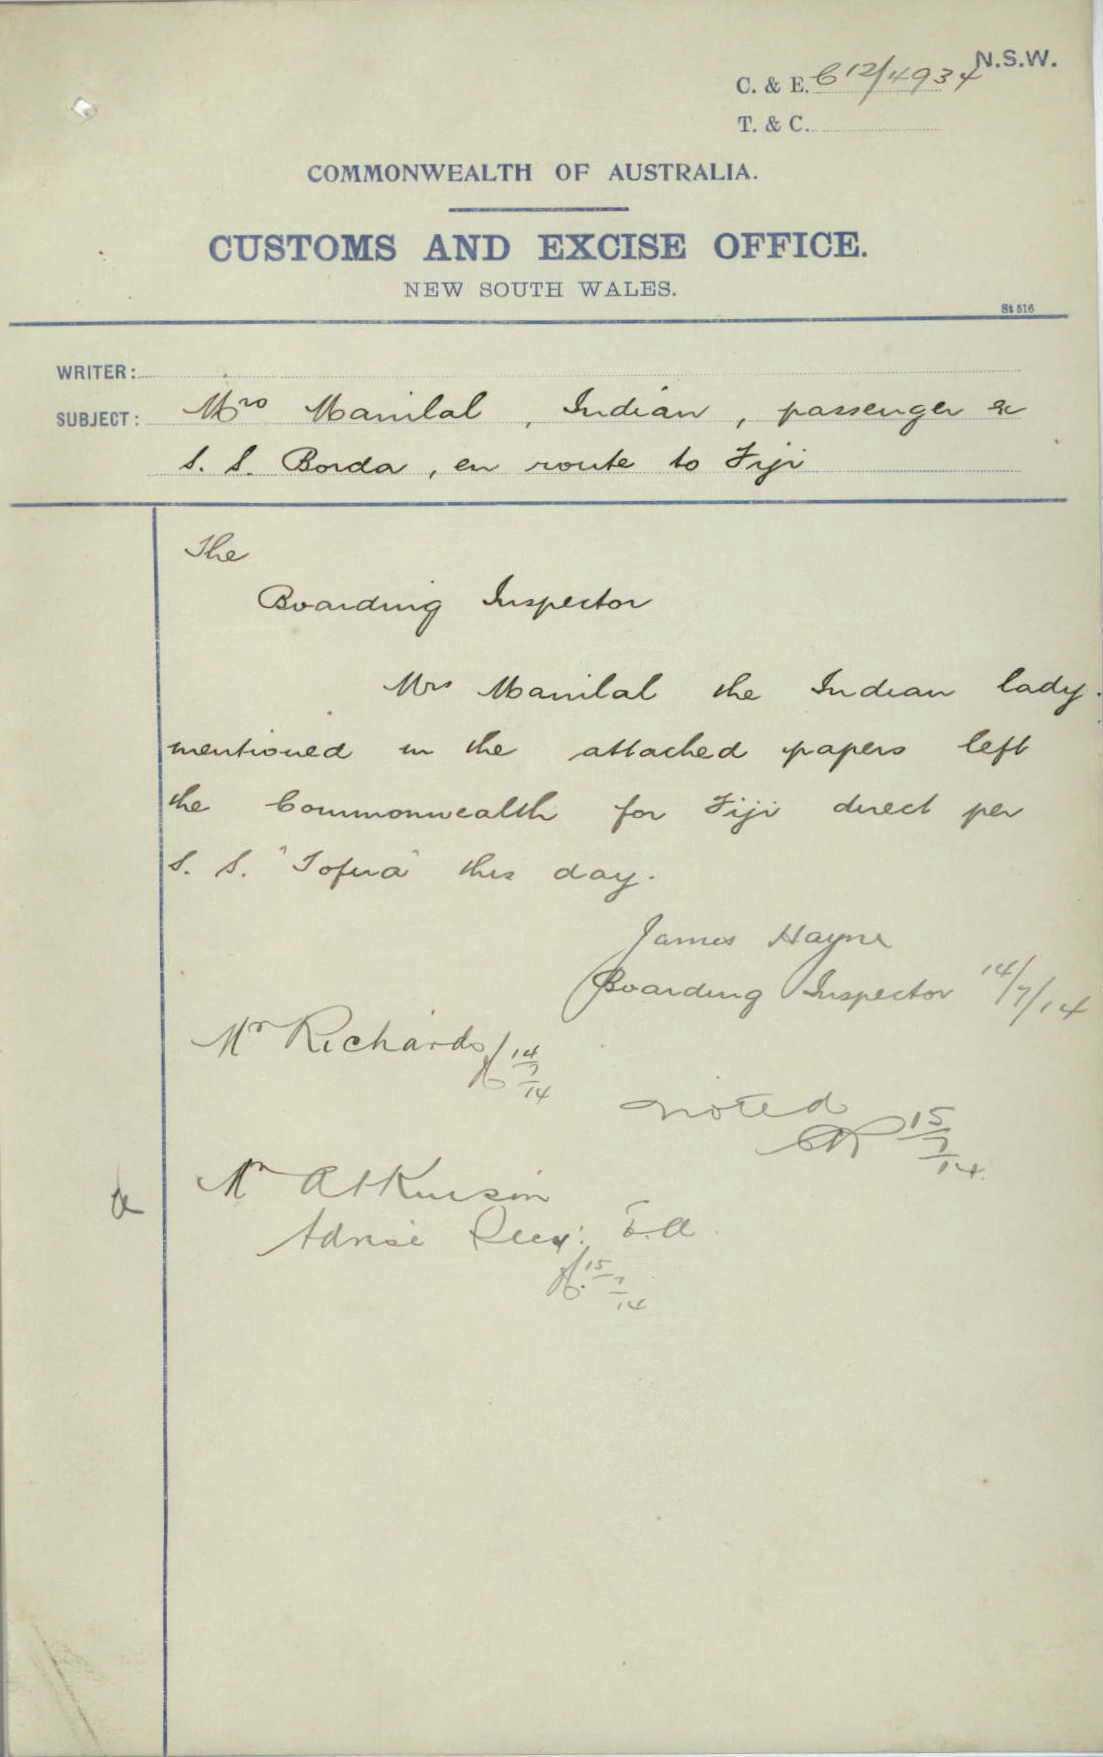 N.S.W.
C. & E. C12/4934
T. & C.
COMMONWEALTH OF AUSTRALIA.
CUSTOMS AND EXCISE OFFICE.
NEW SOUTH WALES.
St 516
WRITER:
SUBJECT: Mrs Manilal, Indian, passenger ex
S. S. Borda, en route to Fiji
The
Boarding Inspector
Mrs Manilal the Indian lady
mentioned in the attached papers left
the Commonwealth for Fiji direct per
S. S. "Tofua" this day.
James Hayne
Boarding Inspector 14/7/14
Mr Richards 14/7/14
Noted
15/7/14
Mr Atkinson
Advise Secy: E.A.
15/7/14